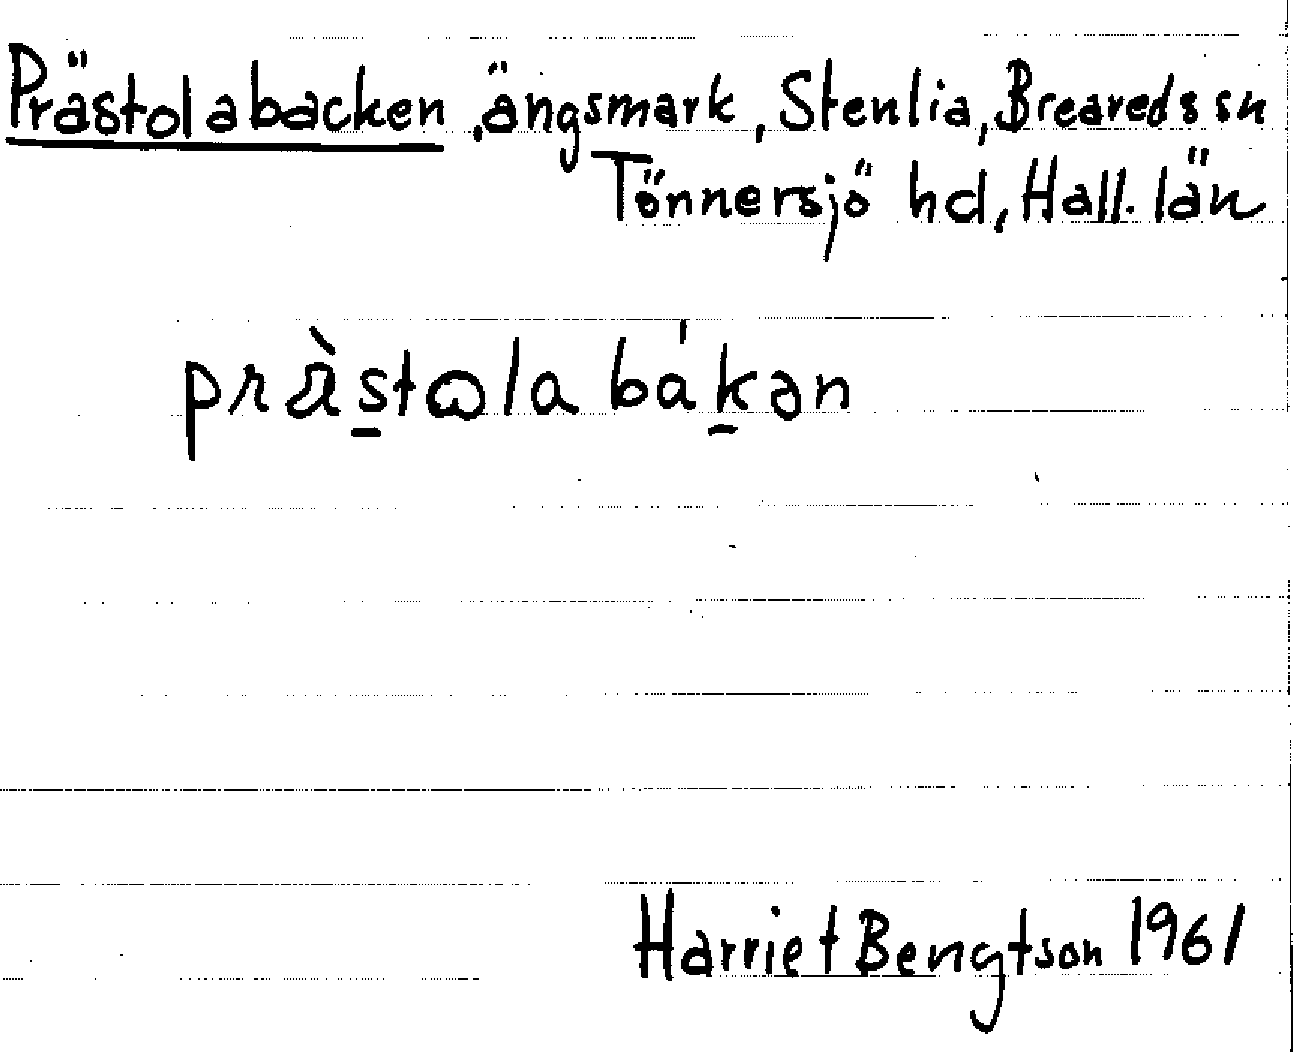 Prästolabacken, ängsmark, Stenlia, Breareds sn
Tönnersjö hd, Hall. län
prä̀s̲tωla bák̲ən
Harriet Bengtson 1961